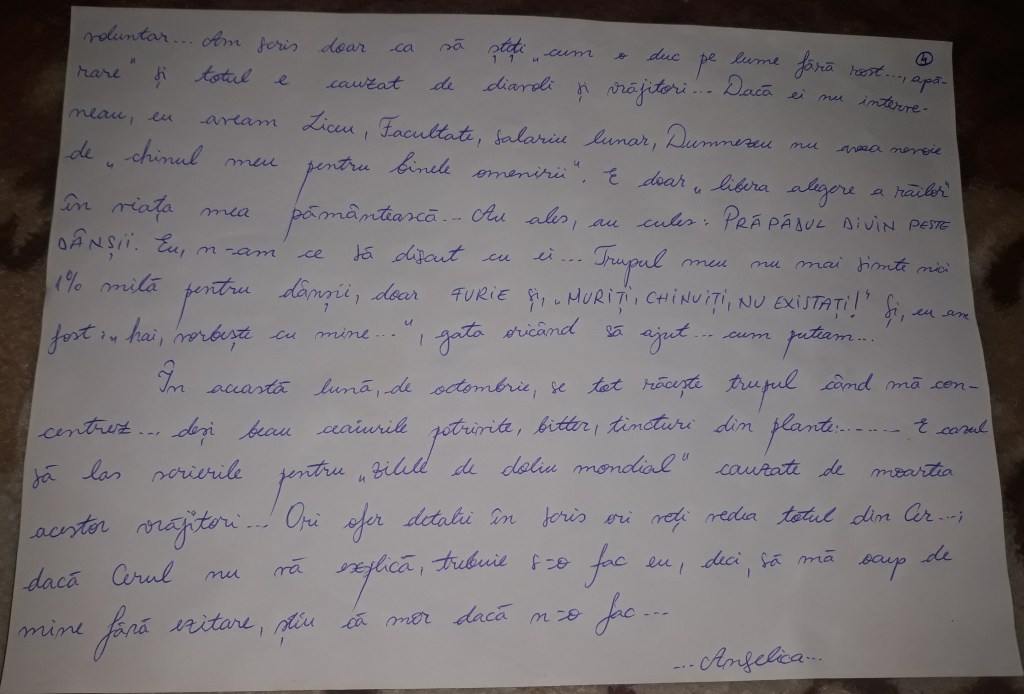 ④
voluntar... Am scris doar ca să știți „cum o duc pe lume fără rost..., apă-
rare" și totul e cauzat de diavoli și vrăjitori... Dacă ei nu interve-
neau, eu aveam Liceu, Facultate, salariu lunar, Dumnezeu nu avea nevoie
de „chinul meu pentru binele omenirii". E doar „libera alegere a răilor"
în viața mea pământească... Au ales, au cules: PRĂPĂDUL DIVIN PESTE
DÂNȘII. Eu, n-am ce să discut cu ei... Trupul meu nu mai simte nici
1% milă pentru dânșii, doar FURIE și, „MURIȚI, CHINUIȚI, NU EXISTAȚI!" Și, eu am
fost: „hai, vorbește cu mine...", gata oricând să ajut... cum puteam...
În această lună, de octombrie, se tot răcește trupul când mă con-
centrez... deși beau ceaiurile potrivite, bitter, tincturi din plante:....... E cazul
să las scrierile pentru „zilele de doliu mondial" cauzate de moartea
acestor vrăjitori... Ori ofer detalii în scris ori veți vedea totul din Cer...;
dacă Cerul nu vă explică, trebuie s-o fac eu, deci, să mă ocup de
mine fără ezitare, știu că mor dacă n-o fac...
...Angelica...